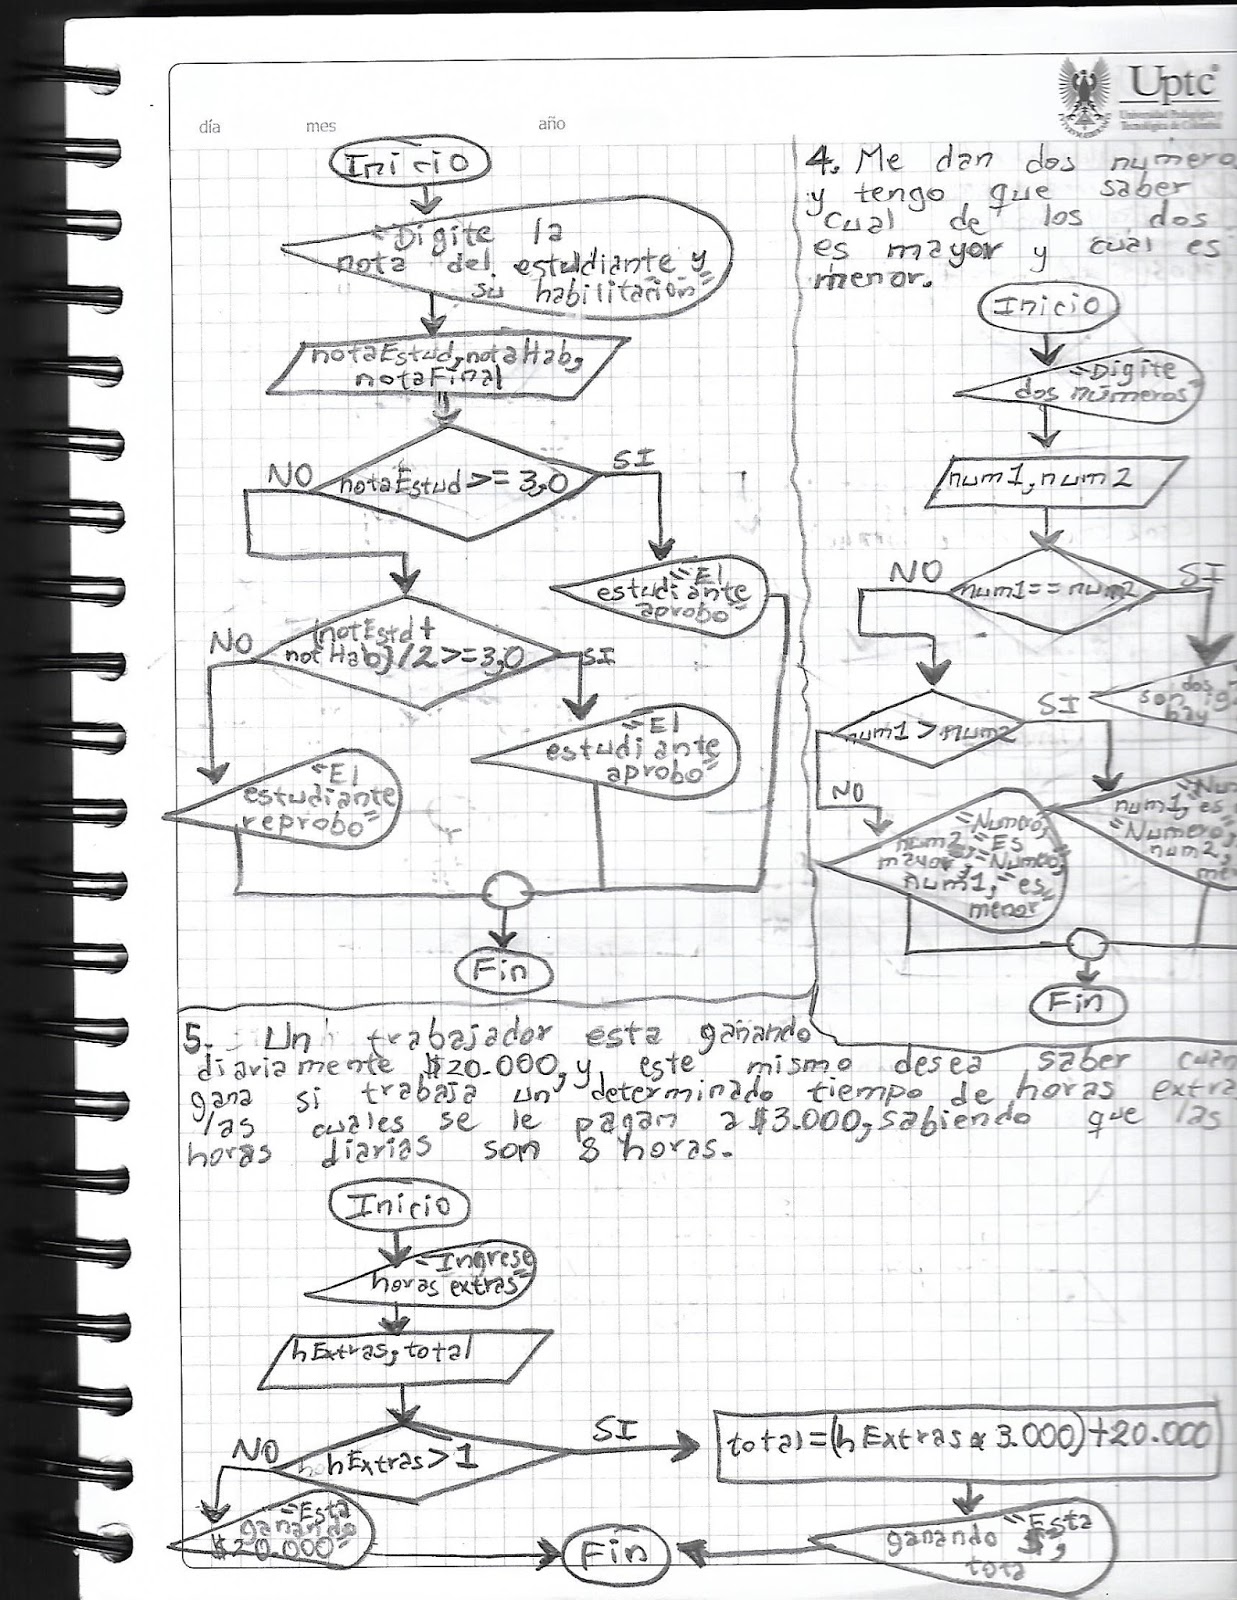 día mes año
Uptc
Universidad Pedagógica y
Tecnológica de Colombia
Inicio
"Digite la
nota del estudiante y
su habilitación"
notaEstud, notaHab,
notaFinal
notaEstud >= 3,0
NO
SI
"El
estudiante
aprobo"
(notEstd +
notHab)/2 >= 3,0
NO
SI
"El
estudiante
aprobo"
"El
estudiante
reprobo"
Fin
4. Me dan dos numero
y tengo que saber
cual de los dos
es mayor y cual es
menor.
Inicio
"Digite
dos números"
num1, num2
num1 == num2
NO
SI
dos
son ig
num1 > num2
SI
NO
"Num
num1, "es
"Numero,
num2,
me
"Numero,
num2, "Es
mayor, "Numero,
num1, "es
menor"
Fin
5. Un trabajador esta ganando
diariamente $20.000, y este mismo desea saber cuan
gana si trabaja un determinado tiempo de horas extra
las cuales se le pagan a $3.000, sabiendo que las
horas diarias son 8 horas.
Inicio
"Ingrese
horas extras"
hExtras, total
hExtras > 1
NO
SI
total = (hExtras * 3.000) + 20.000
"Esta
ganando
$20.000"
"Esta
ganando $",
tota
Fin